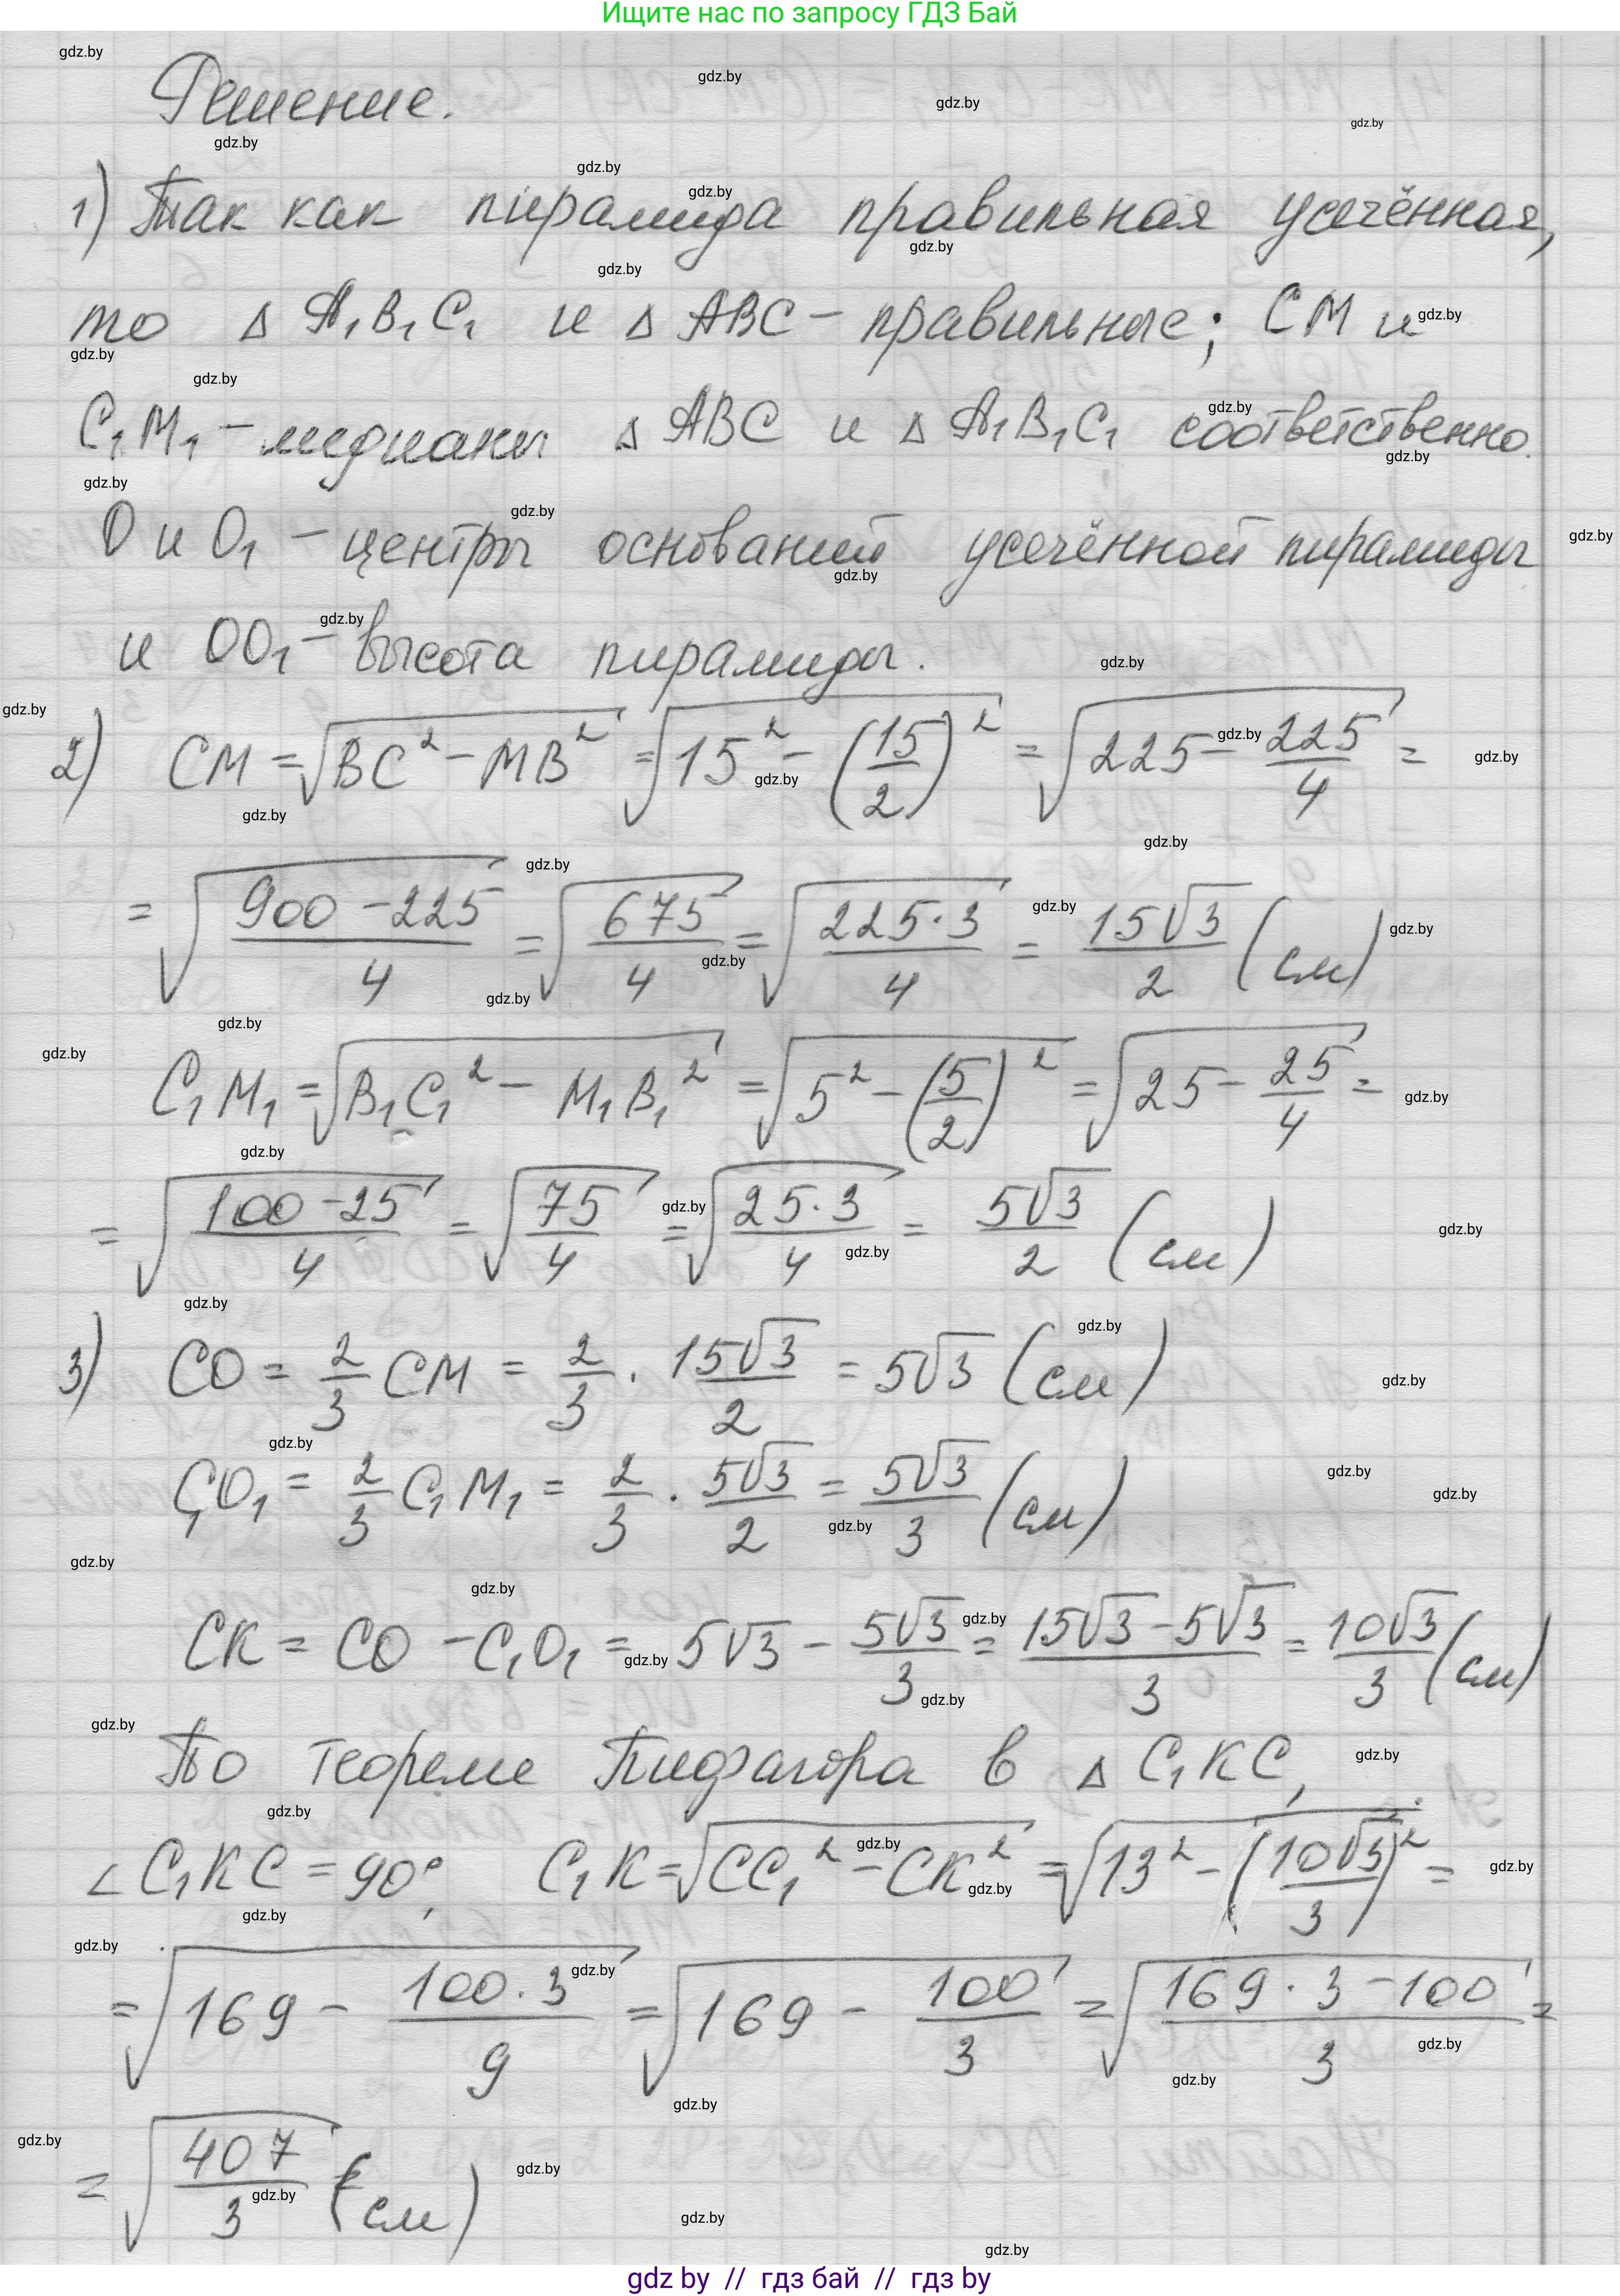 Ищите нас по запросу ГДЗ Бай
Решение.
1) Так как пирамида правильная усечённая,
то △ A₁B₁C₁ и △ ABC – правильные; CM и
C₁M₁ – медианы △ ABC и △ A₁B₁C₁ соответственно.
O и O₁ – центры оснований усечённой пирамиды
и OO₁ – высота пирамиды.
2) CM = √(BC² – MB²) = √(15² – (15/2)²) = √(225 – 225/4) =
= √((900 – 225)/4) = √(675/4) = √((225·3)/4) = 15√3/2 (см)
C₁M₁ = √(B₁C₁² – M₁B₁²) = √(5² – (5/2)²) = √(25 – 25/4) =
= √((100 – 25)/4) = √(75/4) = √((25·3)/4) = 5√3/2 (см)
3) CO = 2/3 CM = 2/3 · 15√3/2 = 5√3 (см)
C₁O₁ = 2/3 C₁M₁ = 2/3 · 5√3/2 = 5√3/3 (см)
CK = CO – C₁O₁ = 5√3 – 5√3/3 = (15√3 – 5√3)/3 = 10√3/3 (см)
По теореме Пифагора в △ C₁KC,
∠ C₁KC = 90°, C₁K = √(CC₁² – CK²) = √(13² – (10√3/3)²) =
= √(169 – (100·3)/9) = √(169 – 100/3) = √((169·3 – 100)/3) =
= √(407/3) (см)
gdz by // гдз бай // гдз by